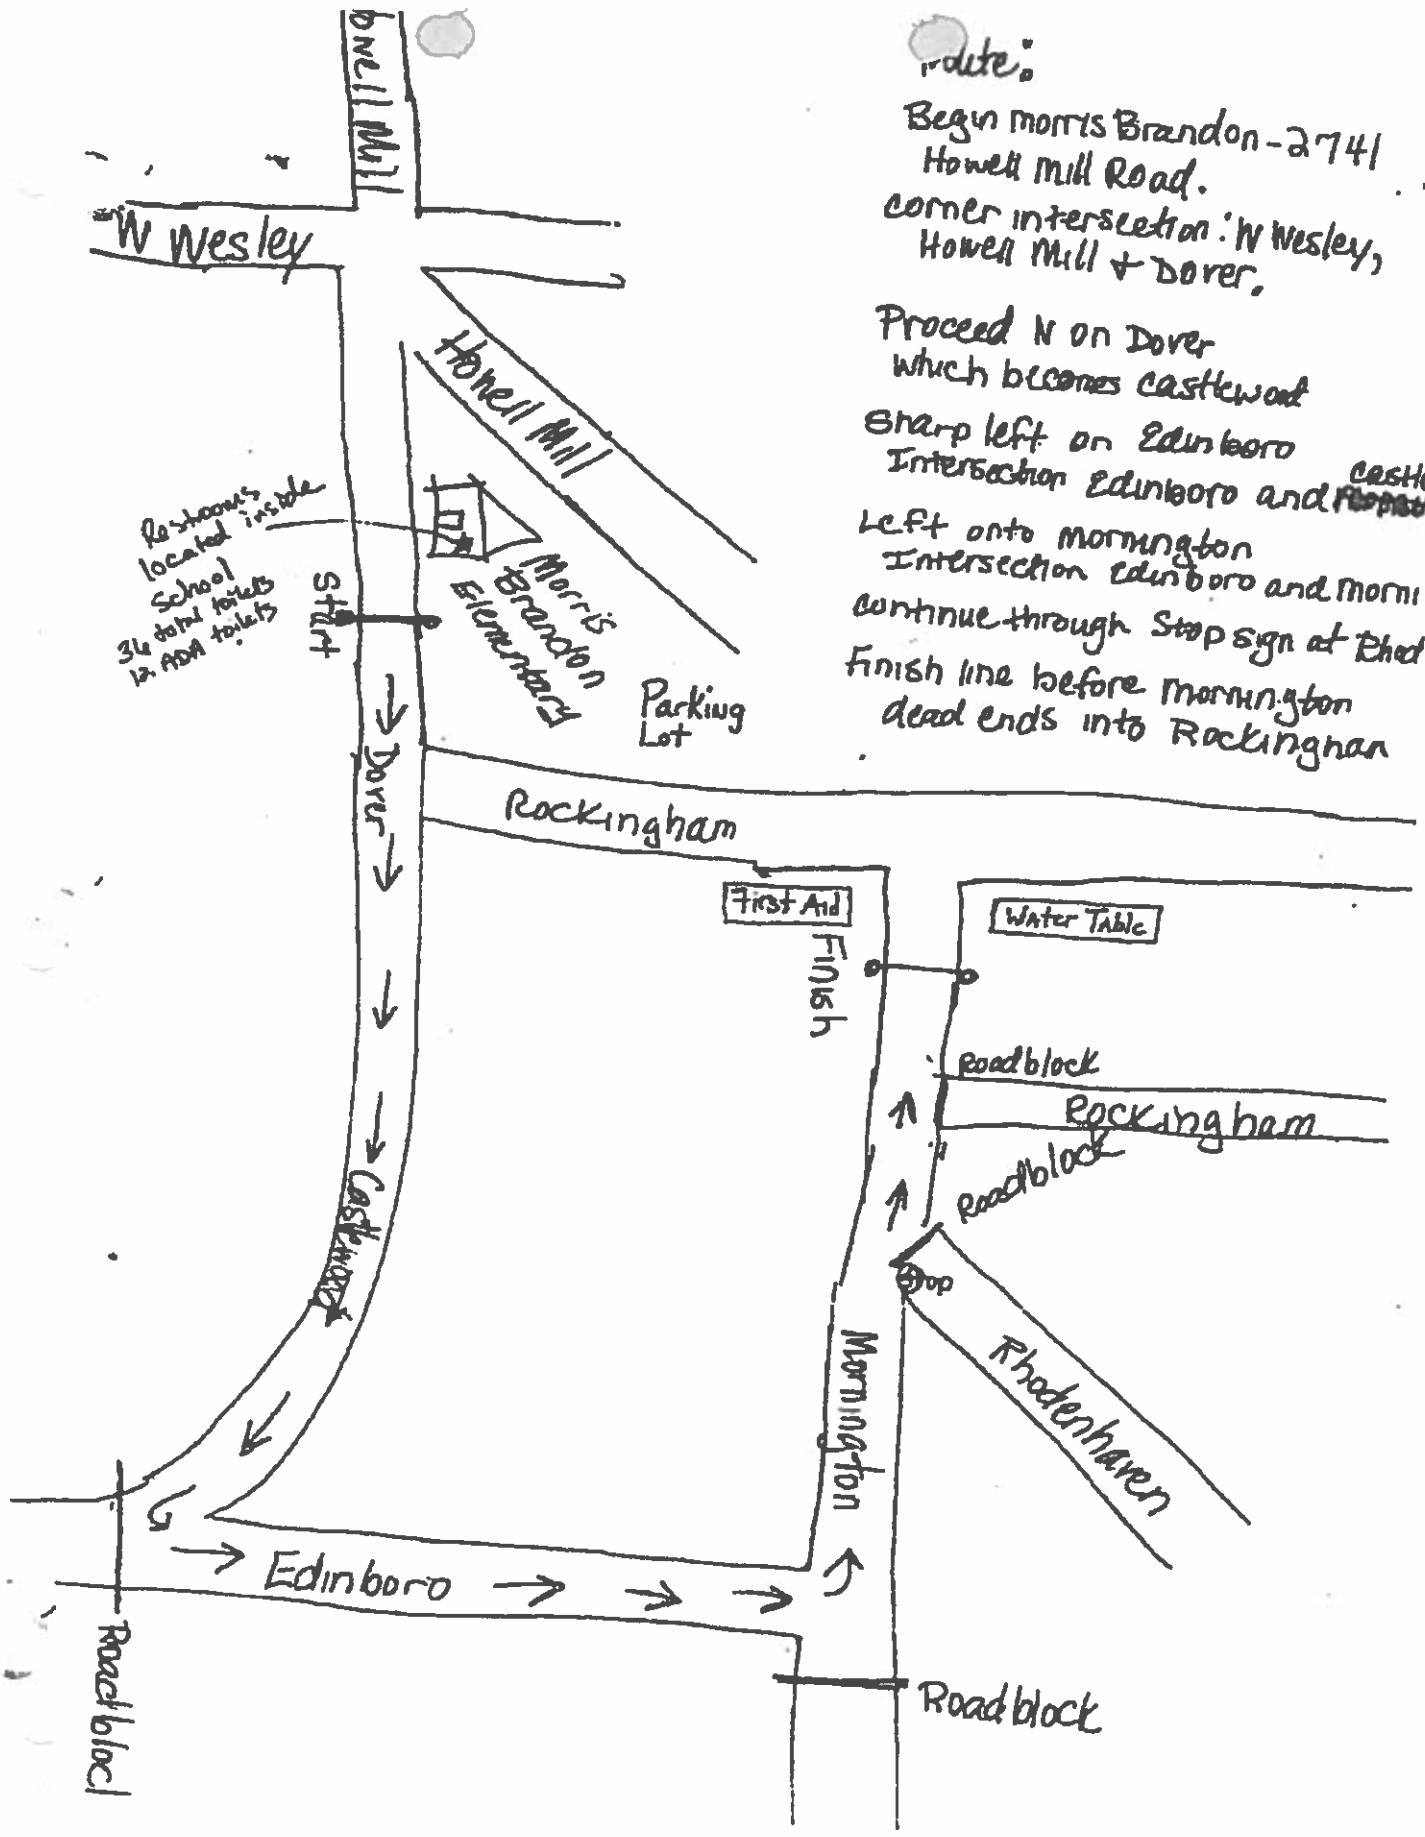 Howell Mill
W Wesley
Howell Mill
Restrooms
located inside
School
36 total toilets
12 ADA toilets
Start
Morris
Brandon
Elementary
Parking
Lot
Dover
Rockingham
First Aid
Water Table
Finish
Roadblock
Rockingham
Roadblock
Castlewood
Stop
Rhodenhaven
Mornington
Edinboro
Roadbloc
Roadblock
route:
Begin morris Brandon-2741
Howell Mill Road.
corner intersection: W Wesley,
Howell Mill + Dover.
Proceed N on Dover
which becomes castlewood
sharp left on Edinboro
Intersection Edinboro and
Left onto Mornington
Intersection Edinboro and Morni
continue through Stop sign at Rhod
Finish line before Mornington
dead ends into Rockingham